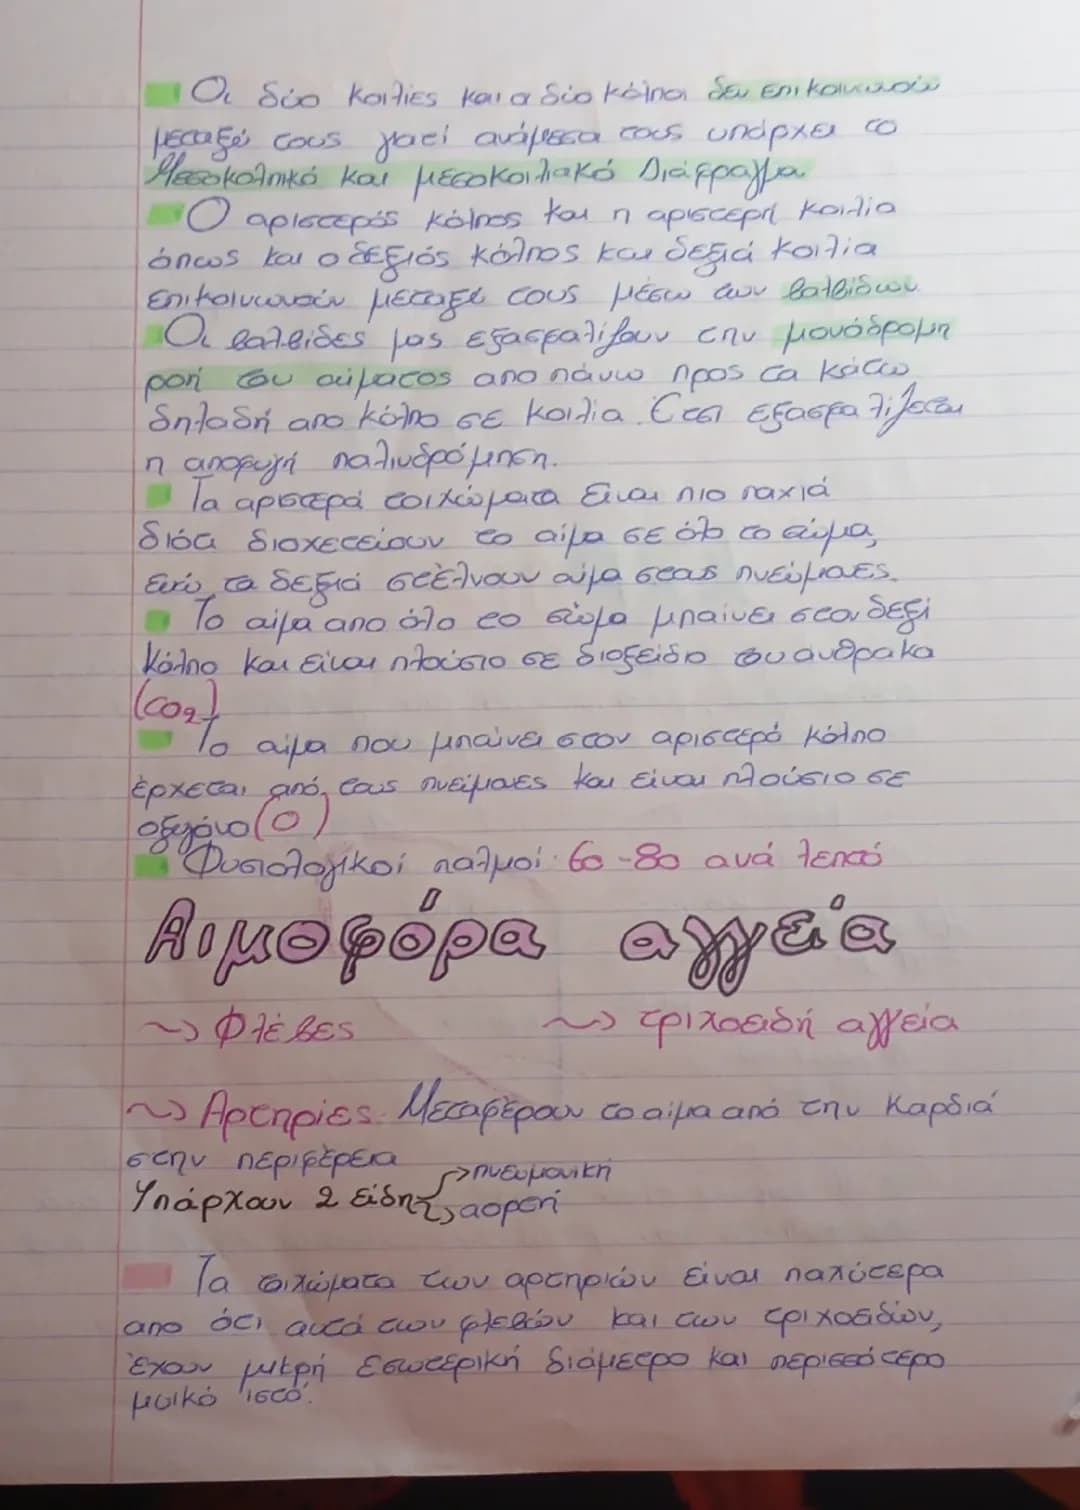 Οι δύο κοιλίες και οι δύο κόλποι δεν επικοινωνούν
μεταξύ τους γιατί ανάμεσα τους υπάρχει το
Μεσοκολπικό και μεσοκοιλιακό Διάφραγμα
Ο αριστερός κόλπος και η αριστερή κοιλία
όπως και ο δεξιός κόλπος και δεξιά κοιλία
επικοινωνούν μεταξύ τους μέσω των βαλβίδων
Οι βαλβίδες μας εξασφαλίζουν την μονόδρομη
ροή του αίματος απο πάνω προς τα κάτω
δηλαδή απο κόλπο σε κοιλία. Έτσι εξασφαλίζεται
η αποφυγή παλινδρόμηση.
Τα αριστερά τοιχώματα είναι πιο παχιά
διότι διοχετεύουν το αίμα σε όλο το σώμα,
ενώ τα δεξιά στέλνουν αίμα στους πνεύμονες.
Το αίμα απο όλο το σώμα μπαίνει στον δεξί
κόλπο και είναι πλούσιο σε διοξείδιο του ανθρακα
(CO2)
Το αίμα που μπαίνει στον αριστερό κόλπο
έρχεται από τους πνεύμονες και είναι πλούσιο σε
οξυγόνο (Ο)
Φυσιολογικοί παλμοί: 60-80 ανά λεπτό
Αιμοφόρα αγγεία
~> Φλέβες ~> τριχοειδή αγγεία
~> Αρτηρίες: Μεταφέρουν το αίμα από την καρδιά
στην περιφέρεια
Υπάρχουν 2 είδη -> πνευμονική
-> αορτή
Τα τοιχώματα των αρτηριών είναι παχύτερα
απο ότι αυτά των φλεβών και των τριχοειδών,
έχουν μικρή εσωτερική διάμετρο και περισσότερο
μυικό ιστό.